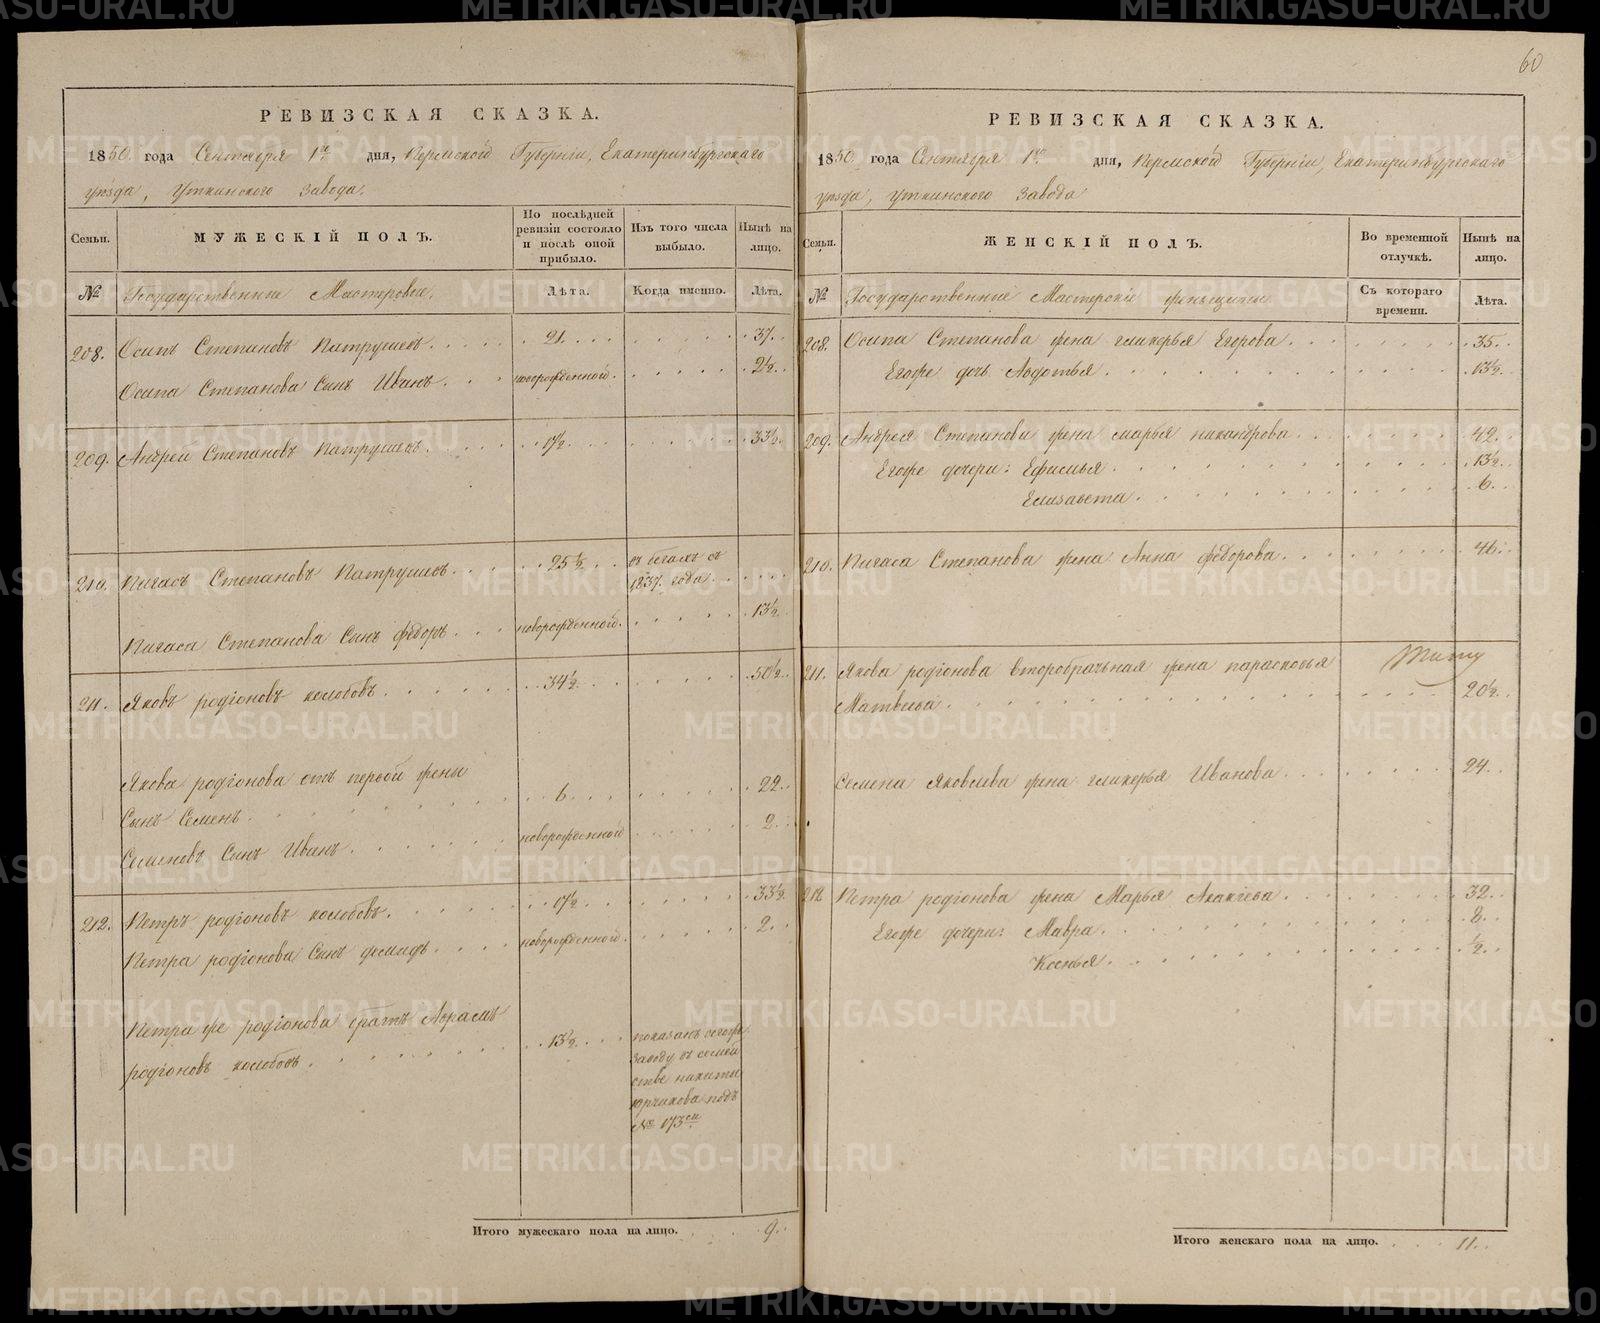 60
РЕВИЗСКАЯ СКАЗКА.
1850. года Сентября 1го дня, Пермской Губерніи, Екатеринбургскаго
уѣзда, Уткинского Завода.
Семьи.
МУЖЕСКІЙ ПОЛЪ.
По послѣдней ревизіи состояло и послѣ оной прибыло.
Изъ того числа выбыло.
Нынѣ на лицо.
№
Государственные Мастеровые.
Лѣта.
Когда именно.
Лѣта.
208. Осипъ Степановъ Патрушевъ. 21. 37.
Осипа Степанова Сынъ Иванъ. новорожденной. 2½.
209. Андрей Степановъ Патрушевъ. 17½. 33½.
210. Пигасъ Степановъ Патрушевъ. 25½. въ бегахъ съ
1837. года.
Пигаса Степанова Сынъ Федоръ. новорожденной. 13½.
211. Яковъ родіоновъ колобовъ. 34½. 50½.
Якова родіонова отъ первой жены
Сынъ Семенъ. 6. 22.
Семеновъ Сынъ Иванъ. новорожденной 2.
212. Петръ родіоновъ колобовъ. 17½. 33½.
Петра родіонова Сынъ Фомидъ. новорожденной. 2.
Петра же родіонова братъ Абрамъ
родіоновъ колобовъ. 13½. показанъ сегожъ
заводу въ семей
стве никиты
под
№ 173 ем
Итого мужескаго пола на лицо. 9.
РЕВИЗСКАЯ СКАЗКА.
1850. года Сентября 1го дня, Пермской Губерніи, Екатеринбургскаго
уѣзда, Уткинского Завода
Семьи.
ЖЕНСКІЙ ПОЛЪ.
Во временной отлучкѣ.
Нынѣ на лицо.
№
Государственные Мастерскіе женьщины
Съ котораго времени.
Лѣта.
208. Осипа Степанова жена гликерья Егорова. 35.
Егоже дочь Авдотья. 13½.
209. Андрея Степанова жена марья никандрова. 42.
Егоже дочери: Ефимья. 13½.
Елизавета. 6.
210. Пигаса Степанова жена Анна федорова. 46.
211. Якова родіонова второбрачьная жена парасковья
Матвеева. 20½.
Семена Яковлева жена гликерья Иванова. 24.
212 Петра родіонова жена Марья Акакіева. 32.
Егоже дочери: Мавра. 8.
Ксенья. ½.
Итого женскаго пола на лицо. 11.
METRIKI.GASO-URAL.RU